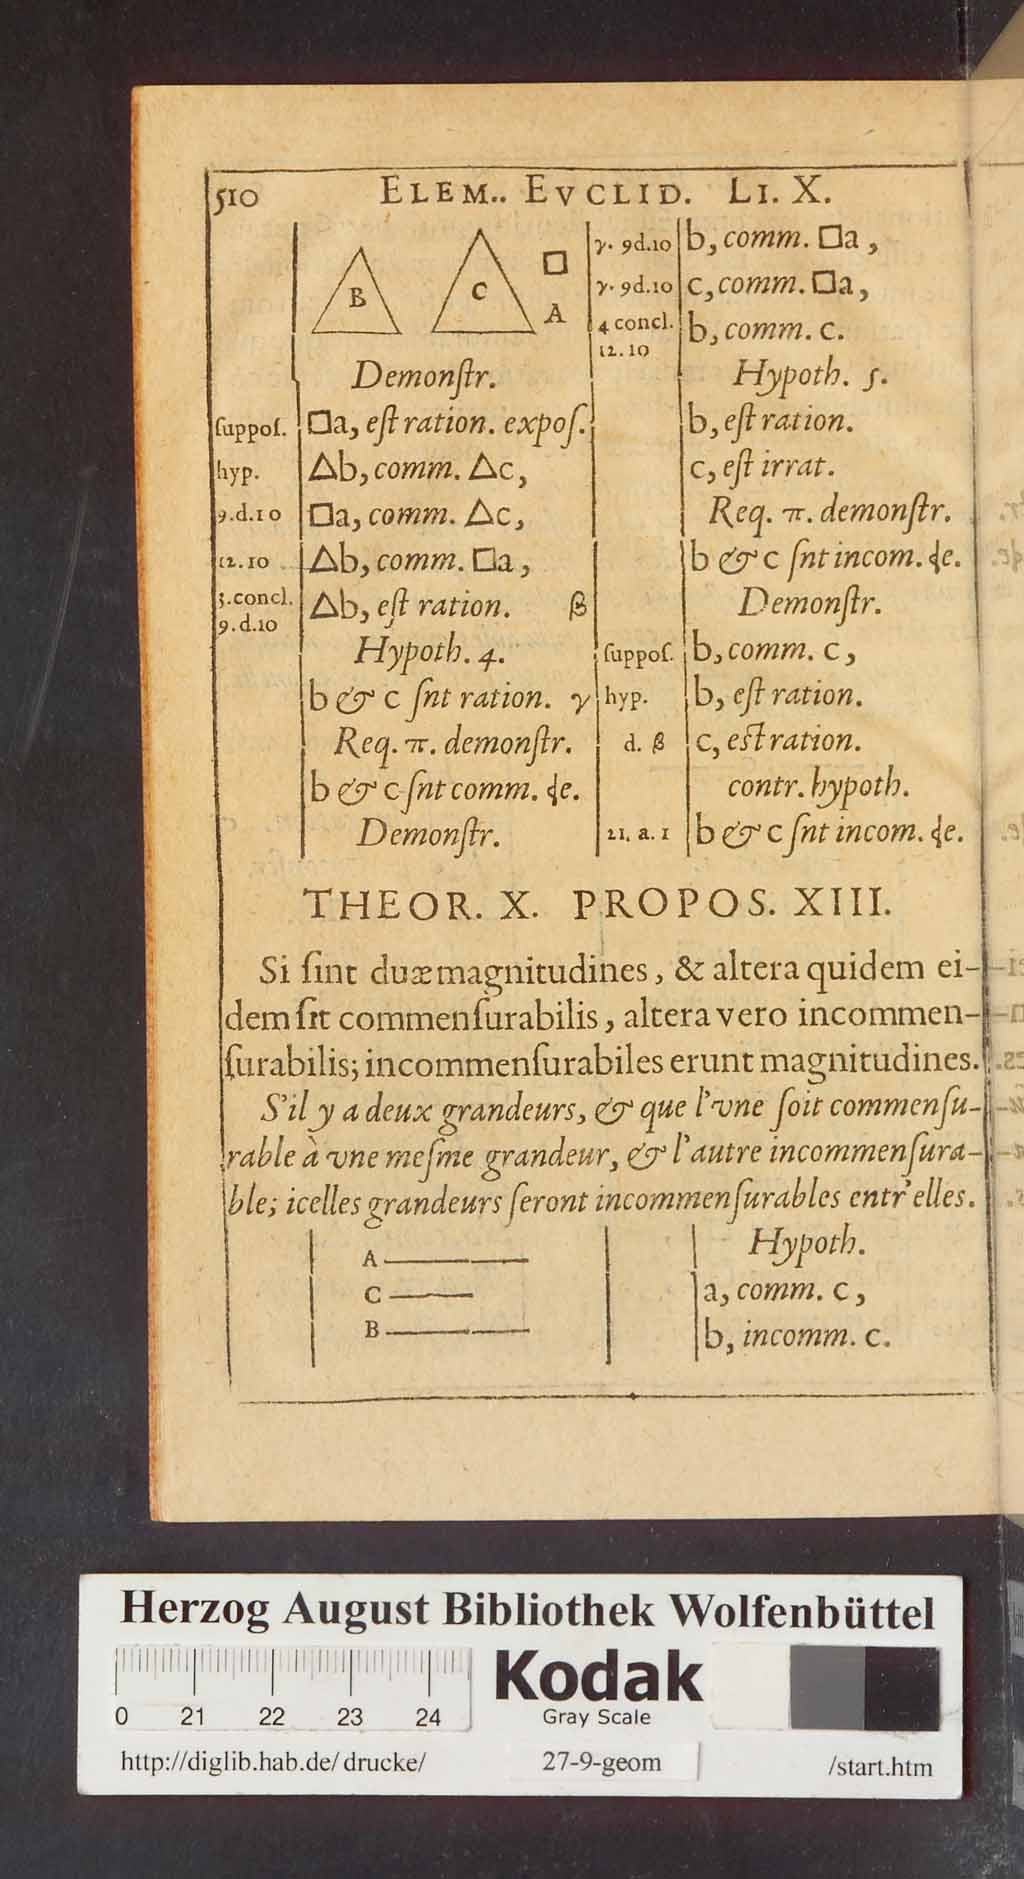 510 ELEM.. EVCLID. LI. X.
B C A
Demonſtr.
ſuppoſ. □a, eſt ration. expoſ.
hyp. △b, comm. △c,
9.d.10 □a, comm. △c,
12.10 △b, comm. □a,
3.concl. 9.d.10 △b, eſt ration. β
Hypoth. 4.
b & c ſnt ration. γ
Req. π. demonſtr.
b & c ſnt comm. ɖe.
Demonſtr.
γ. 9d.10 b, comm. □a,
γ. 9d.10 c, comm. □a,
4 concl. 12.10 b, comm. c.
Hypoth. 5.
b, eſt ration.
c, eſt irrat.
Req. π. demonſtr.
b & c ſnt incom. ɖe.
Demonſtr.
ſuppoſ. b, comm. c,
hyp. b, eſt ration.
d. β c, eſt ration.
contr. hypoth.
21. a. 1 b & c ſnt incom. ɖe.
THEOR. X. PROPOS. XIII.
Si ſint duæ magnitudines, & altera quidem ei-
dem ſit commenſurabilis, altera vero incommen-
ſurabilis; incommenſurabiles erunt magnitudines.
S'il y a deux grandeurs, & que l'vne ſoit commenſu-
rable à vne meſme grandeur, & l'autre incommenſura-
ble; icelles grandeurs ſeront incommenſurables entr'elles.
A
C
B
Hypoth.
a, comm. c,
b, incomm. c.
Herzog August Bibliothek Wolfenbüttel
0 21 22 23 24
Kodak
Gray Scale
http://diglib.hab.de/drucke/ 27-9-geom /start.htm